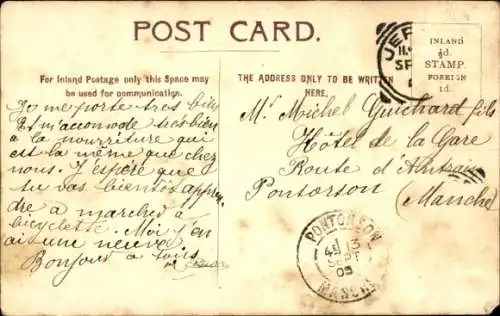 POST CARD.
For Inland Postage only this Space may
be used for communication.
THE ADDRESS ONLY TO BE WRITTEN
HERE.
INLAND
½d.
STAMP.
FOREIGN
1d.
JER
SP
Je me porte tres bien
Et m'accomode tres bien
a la nourriture qui
est la même que chez
nous. J'espère que
tu vas bientôt appren
dre a marcher à
bicyclette. Moi j'en
ai une neuve
Bonjour a tous
Mr Michel Guichard fils
Hôtel de la Gare
Route d'Antrain
Pontorson
(Manche)
PONTORSON
13
SEPT
05
MANCHE